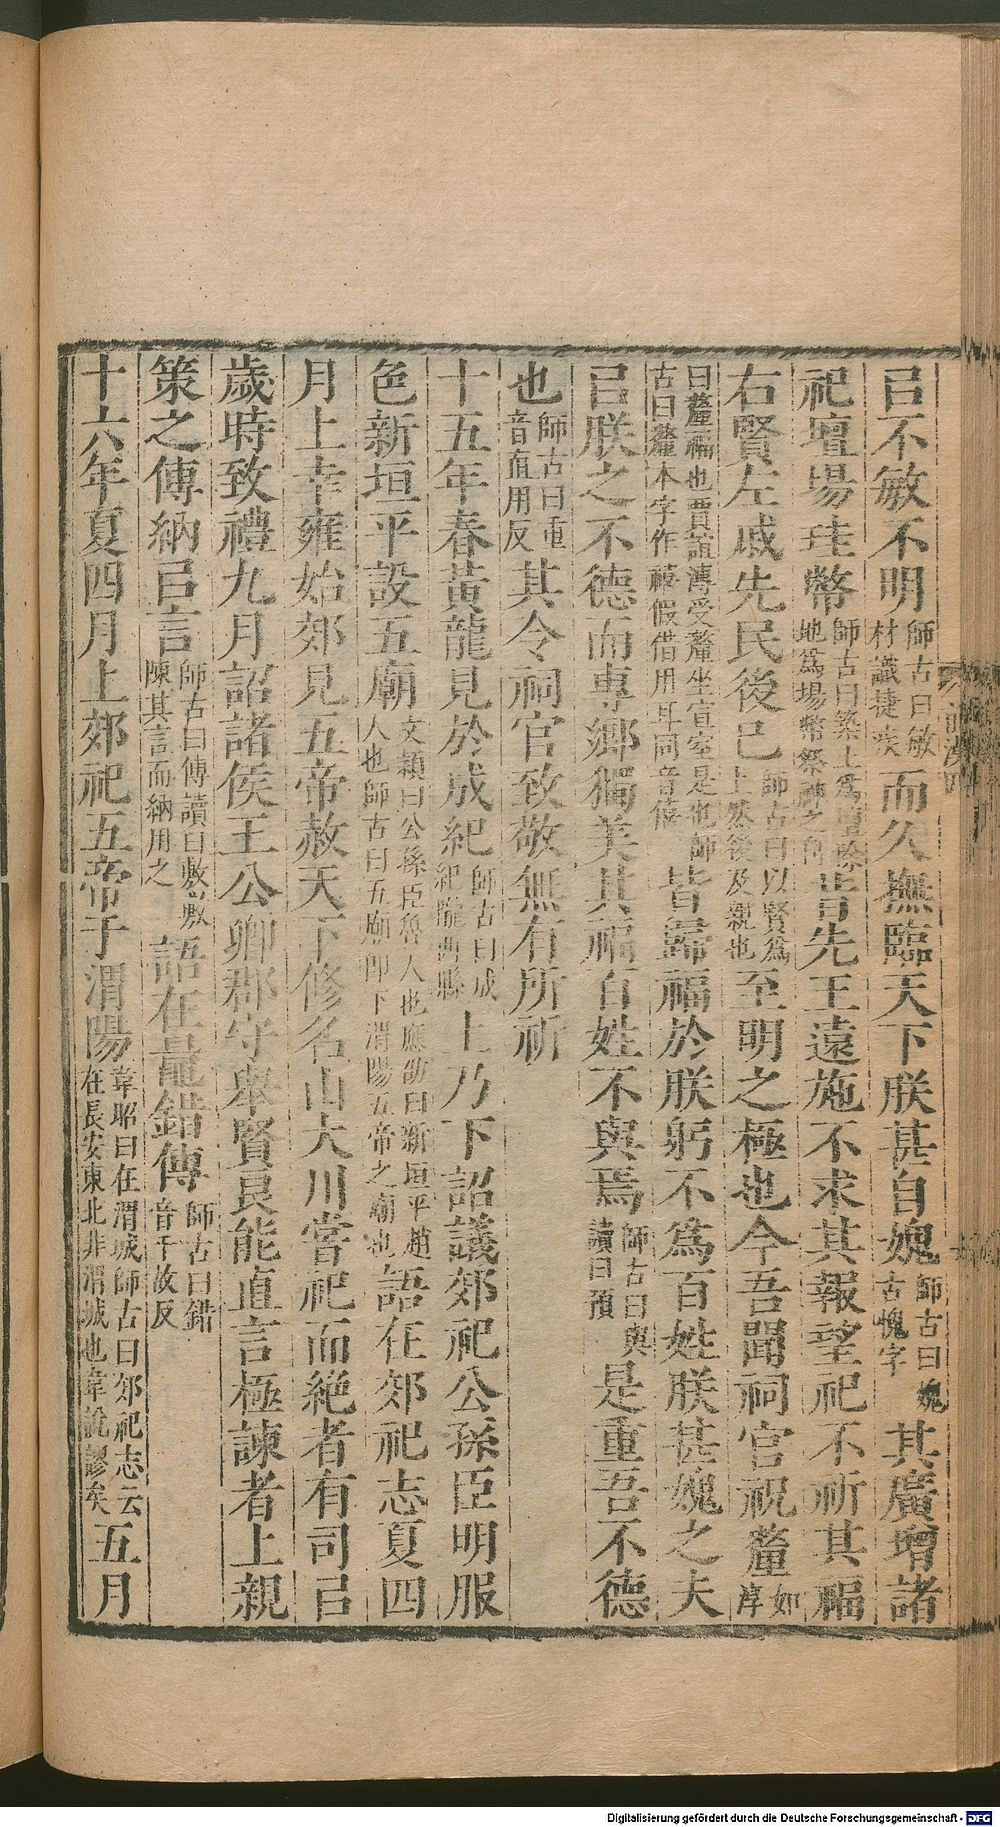 㠯不敏不明師古曰敏材識捷疾而久撫臨天下朕甚自媿師古曰媿古愧字其廣增諸
祀壇場珪幣師古曰築土爲壇除地爲場幣祭神之帛昔先王遠施不求其報望祀不祈其福
右賢左戚先民後己師古曰以賢爲上然後及親也至明之極也今吾聞祠官祝釐如淳
曰釐福也賈誼傳受釐坐宣室是也師古曰釐本字作禧假借用耳同音僖皆歸福於朕躬不爲百姓朕甚媿之夫
㠯朕之不德而專鄉獨美其福百姓不與焉師古曰與讀曰預是重吾不德
也師古曰重音直用反其令祠官致敬無有所祈
十五年春黃龍見於成紀師古曰成紀隴西縣上乃下詔議郊祀公孫臣明服
色新垣平設五廟文穎曰公孫臣魯人也應劭曰新垣平趙人也師古曰五廟卽下渭陽五帝之廟也語在郊祀志夏四
月上幸雍始郊見五帝赦天下修名山大川嘗祀而絶者有司㠯
歲時致禮九月詔諸侯王公卿郡守舉賢良能直言極諫者上親
策之傅納㠯言師古曰傅讀曰敷敷陳其言而納用之語在鼂錯傳師古曰錯音千故反
十六年夏四月上郊祀五帝于渭陽韋昭曰在渭城師古曰郊祀志云在長安東北非渭城也韋說謬矣五月
Digitalisierung gefördert durch die Deutsche Forschungsgemeinschaft - DFG